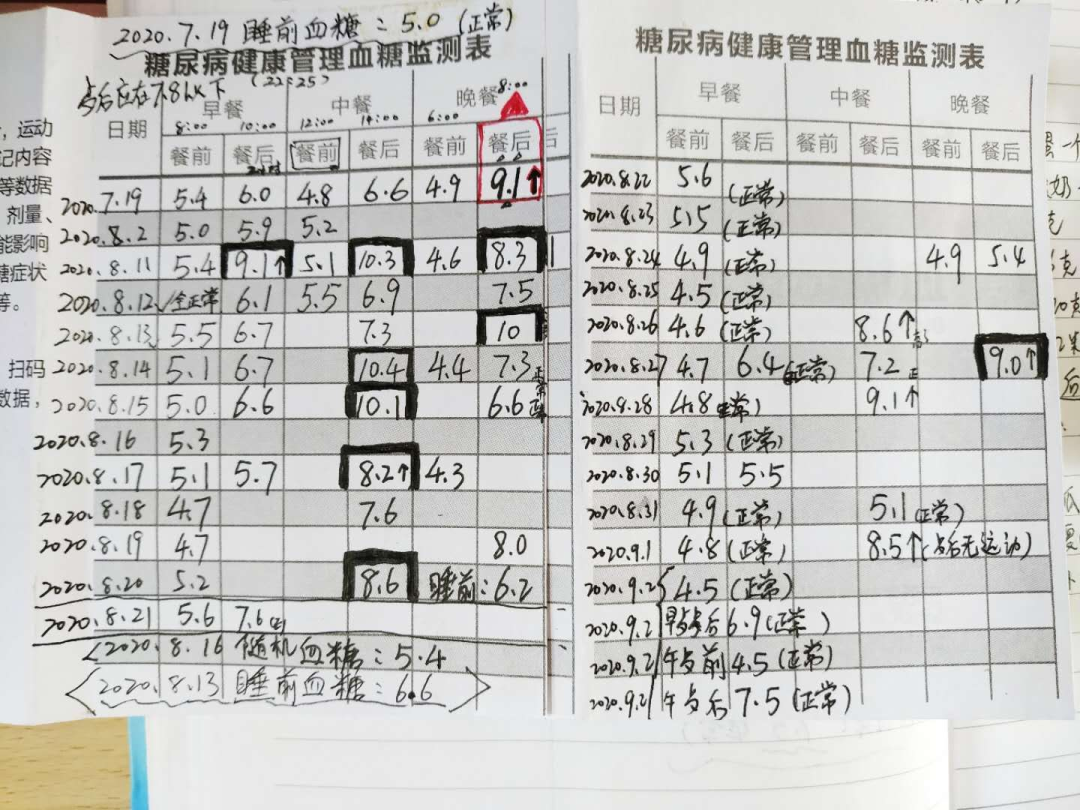 2020.7.19 睡前血糖:5.0 (正常)
糖尿病健康管理血糖监测表
(22:25)
日期 早餐 中餐 晚餐
8:00 10:00 12:00 14:00 6:00 8:00
餐前 餐后 餐前 餐后 餐前 餐后
2020.7.19 5.4 6.0 4.8 6.6 4.9 9.1↑
2020.8.2 5.0 5.9 5.2
2020.8.11 5.4 9.1↑ 5.1 10.3 4.6 8.3
2020.8.12 全正常 6.1 5.5 6.9 7.5
2020.8.13 5.5 6.7 7.3 10
2020.8.14 5.1 6.7 10.4 4.4 7.3 正常
2020.8.15 5.0 6.6 10.1 6.6 正常
2020.8.16 5.3
2020.8.17 5.1 5.7 8.2↑ 4.3
2020.8.18 4.7 7.6
2020.8.19 4.7 8.0
2020.8.20 5.2 8.6 睡前:6.2
2020.8.21 5.6 7.6
2020.8.16 随机血糖:5.4
2020.8.13 睡前血糖:6.6
，运动
记内容
等数据
剂量、
能影响
糖症状
等。
扫码
数据，
糖尿病健康管理血糖监测表
日期 早餐 中餐 晚餐
餐前 餐后 餐前 餐后 餐前 餐后
2020.8.22 5.6 (正常)
2020.8.23 5.5 (正常)
2020.8.24 4.9 (正常) 4.9 5.4
2020.8.25 4.5 (正常)
2020.8.26 4.6 (正常) 8.6↑
2020.8.27 4.7 6.4 (正常) 7.2 正 9.0↑
2020.8.28 4.8 正常) 9.1↑
2020.8.29 5.3 (正常)
2020.8.30 5.1 5.5
2020.8.31 4.9 (正常) 5.1 (正常)
2020.9.1 4.8 (正常) 8.5↑ (歺后无运动)
2020.9.2 4.5 (正常)
2020.9.2 早歺后 6.9 (正常)
2020.9.2 午歺前 4.5 (正常)
2020.9.2 午歺后 7.5 (正常)